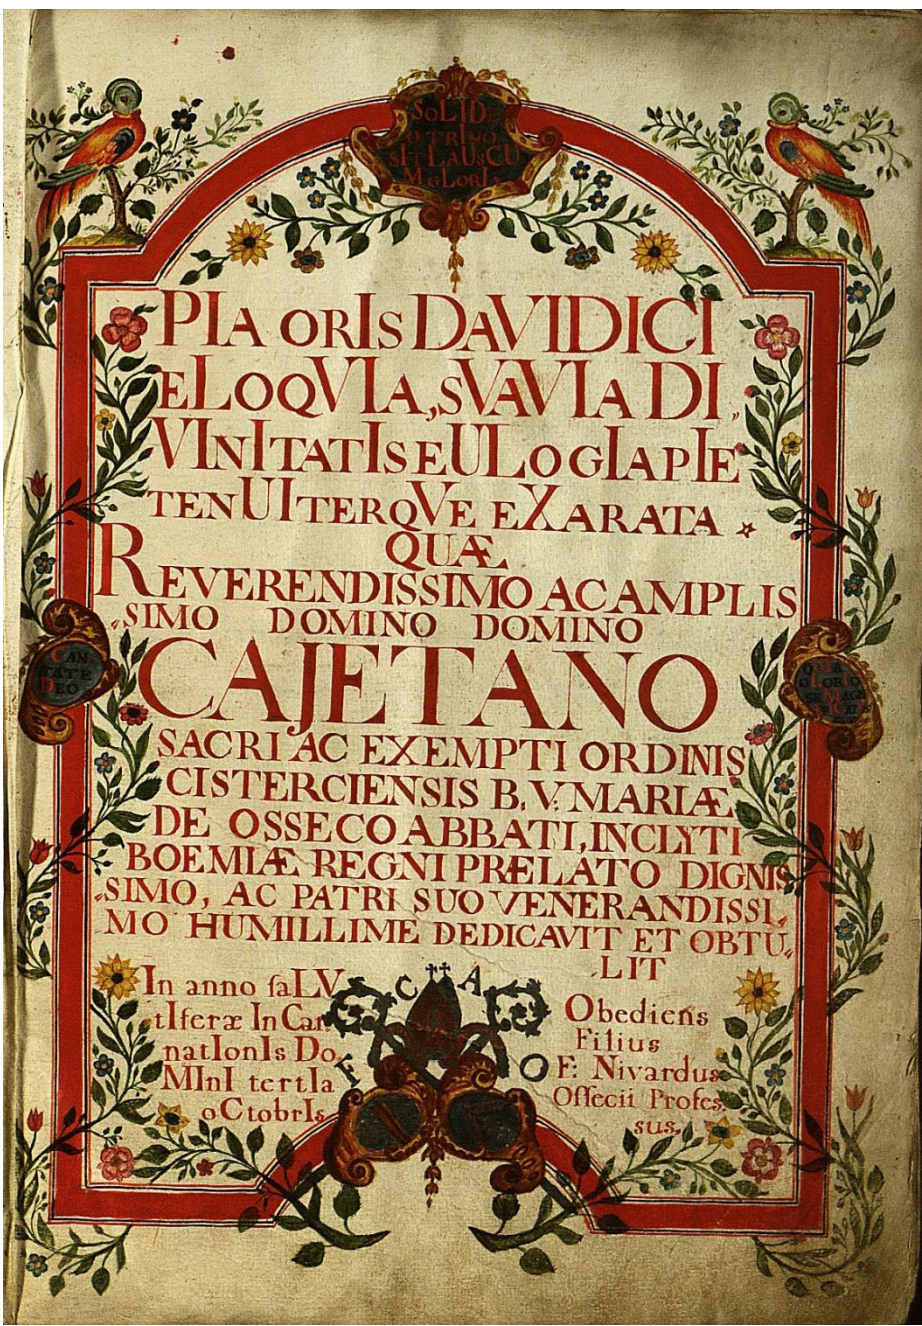 SoLID
O TRINO
SIT LAUsCU
M GLORIA
PIA ORIs DaVIDICI
eLOQVIA, sVaVIa DI„
VINITATIs eULOGIA PIE
TENUITERQVE eXARATA
QUÆ
REVERENDISSIMO AC AMPLIS
„SIMO DOMINO DOMINO
CAJETANO
SACRI AC EXEMPTI ORDINIS
CISTERCIENSIS B. V: MARIÆ
DE OSSECO ABBATI, INCLYTI
BOEMIÆ REGNI PRÆLATO DIGNIS
„SIMO, AC PATRI SUO VENERANDISSI„
MO HUMILLIME DEDICAVIT ET OBTU„
„LIT
CAN
TATE
DEO
In anno ſaLV
tIferæ InCar
natIonIs Do„
MInI tertIa
oCtobrIs
F C A O
Obediens
Filius
F: Nivardus
Oſſecii Profes„
sus.